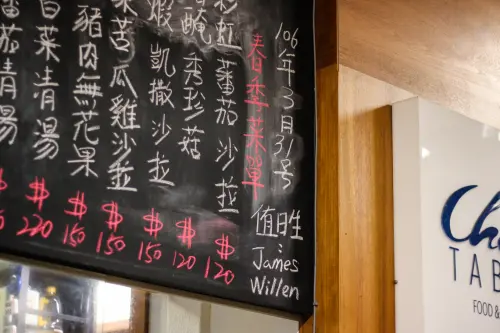 106年3月31号
春季菜單
侑日生:
James
Willen
彩虹蕃茄沙拉
$120
醃秀珍菇
$120
蝦凱撒沙拉
$150
苦瓜雞沙拉
$150
豬肉無花果
$150
白菜清湯
$220
番茄清湯
$
Ch
TAB
FOOD &